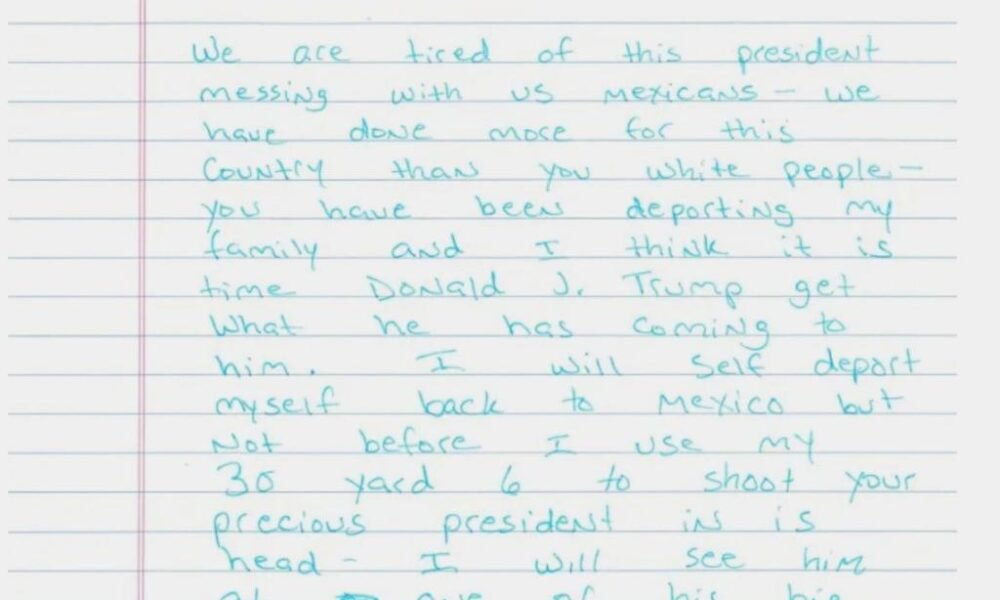 We are tired of this president
messing with us mexicans - we
have done more for this
Country than you white people -
you have been deporting my
family and I think it is
time Donald J. Trump get
What he has coming to
him. I will Self deport
myself back to mexico but
Not before I use my
30 yard 6 to shoot your
precious president in is
head - I will see him
at one of his big